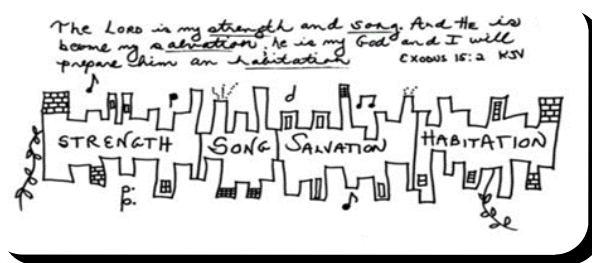 The LORD is my strength and song. And He is
become my salvation, he is my God and I will
prepare him an habitation EXODUS 15:2 KJV
STRENGTH SONG SALVATION HABITATION